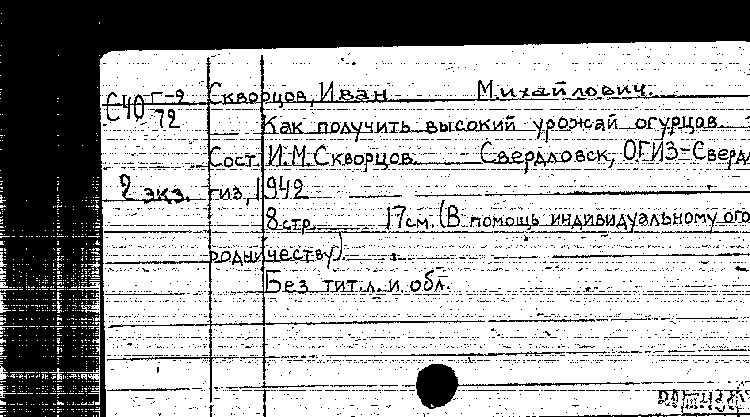 С40 Г-9 Скворцов, Иван Михайлович.
72
Как получить высокий урожай огурцов.
Сост. И.М.Скворцов. Свердловск, ОГИЗ-Сверд
2 экз. гиз, 1942
8 стр. 17 см. (В помощь индивидуальному ого
родничеству)
Без тит. л. и обл.